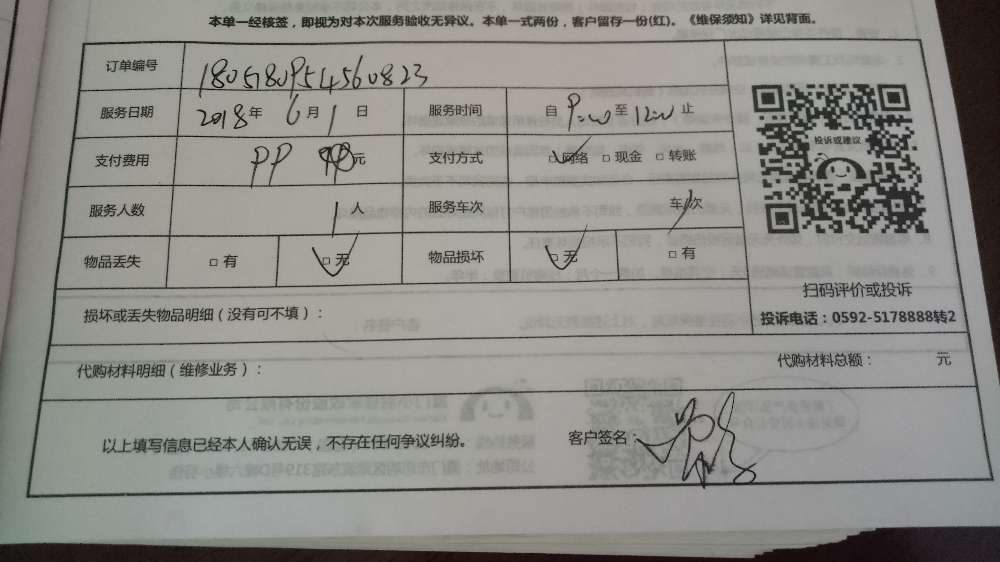 本单一经核签，即视为对本次服务验收无异议。本单一式两份，客户留存一份(红)。《维保须知》详见背面。
订单编号 180518095454560823
服务日期 2018年 6月 1 日 服务时间 自 至 12:00 止
支付费用 元 支付方式 □网络 □现金 □转账
服务人数 1 人 服务车次 车/次
物品丢失 □有 □无 物品损坏 □无 □有
投诉或建议
扫码评价或投诉
投诉电话：0592-5178888转2
损坏或丢失物品明细（没有可不填）：
代购材料明细（维修业务）： 代购材料总额： 元
以上填写信息已经本人确认无误，不存在任何争议纠纷。 客户签名：